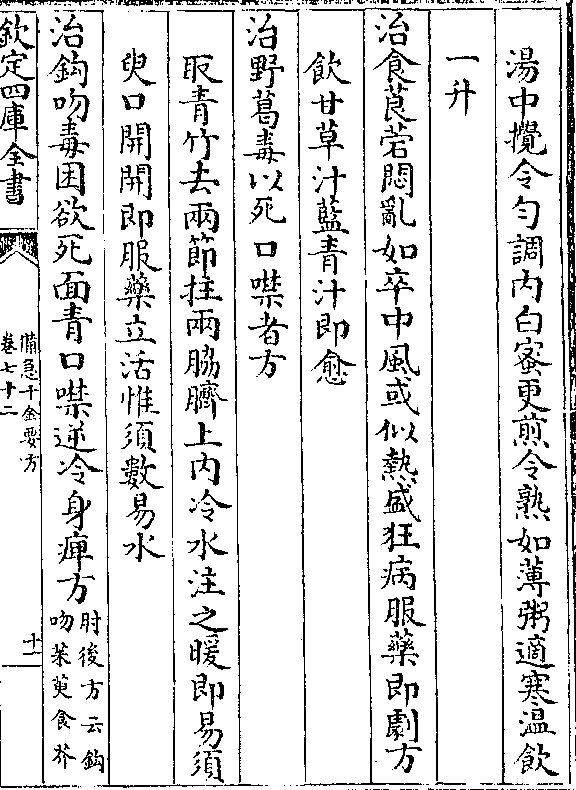 湯中攪令勻調内白蜜更煎令熟如薄粥適寒温飲
一升
治食莨菪悶亂如卒中風或似熱盛狂病服藥即劇方
飲甘草汁藍青汁即愈
治野葛毒以死口噤者方
取青竹去兩節拄兩脇臍上内冷水注之暖即易須
臾口開開即服藥立活惟須數易水
治鈎吻毒困欲死面青口噤逆冷身痺方肘後方云鈎
吻茱萸食芥
欽定四庫全書
備急千金要方
卷七十二
十一